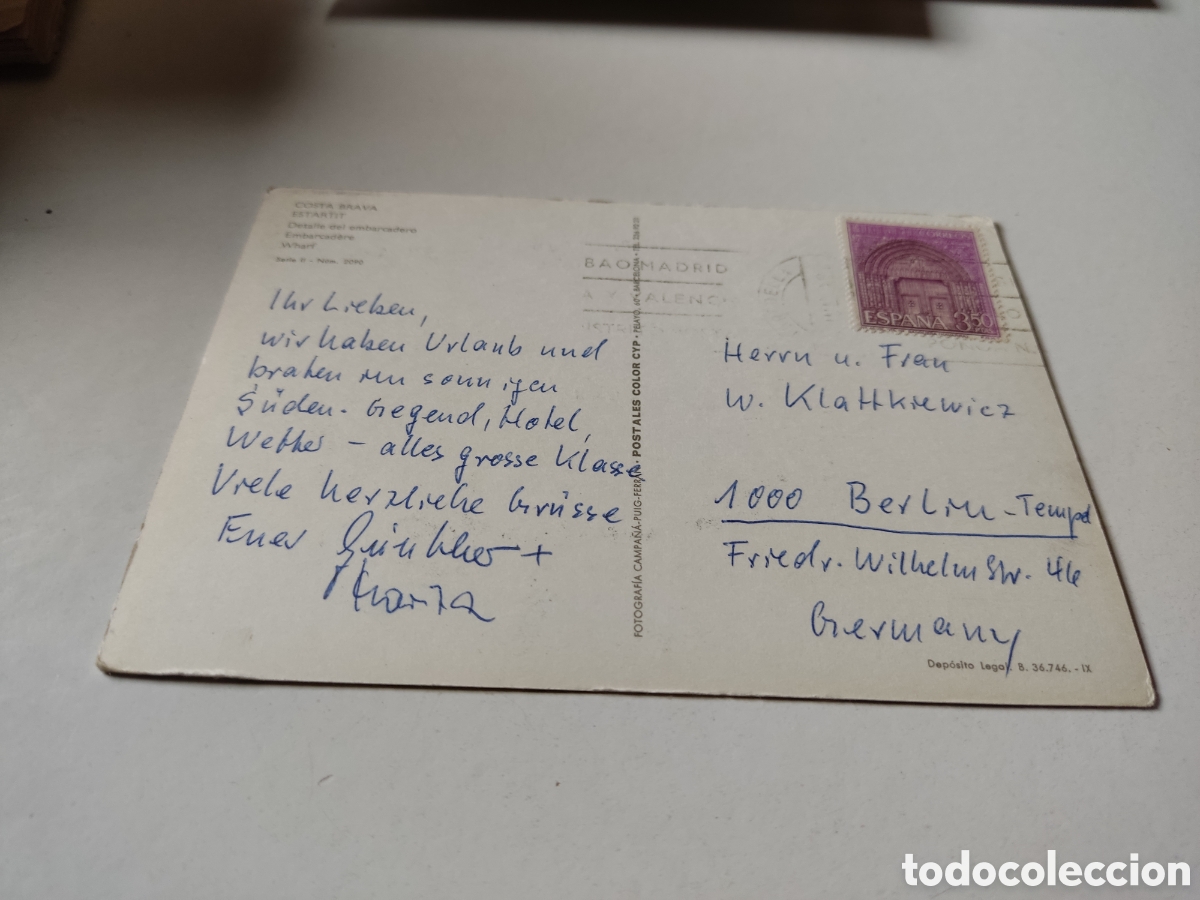 COSTA BRAVA
ESTARTIT
Detalle del embarcadero
Embarcadère
Wharf
Serie II - Núm. 2090
Ihr Lieben,
wir haben Urlaub und
braten im sonnigen
Süden. Gegend, Hotel,
Wetter - alles grosse Klasse
Viele herzliche Grüsse
Euer Günther +
FOTOGRAFÍA CAMPAÑÁ-PUIG-FERRÁN - POSTALES COLOR CYP - PELAYO, BARCELONA
BAO MADRID
A Y VALENC
CORREO
ESPAÑA 3,50
Herrn u. Frau
W. Klattkiewicz
1000 Berlin-Tempd
Friedr. Wilhelm Str. 46
Germany
Depósito Legal. B. 36.746.-IX
todocoleccion